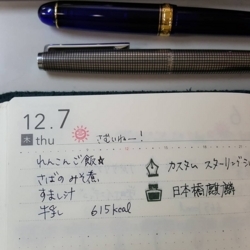 12.7
木 thu
さむいねー!
れんこんご飯
さばのみそ煮
すまし汁
牛乳 615kcal
カスタム スターリングシ
日本橋麒麟